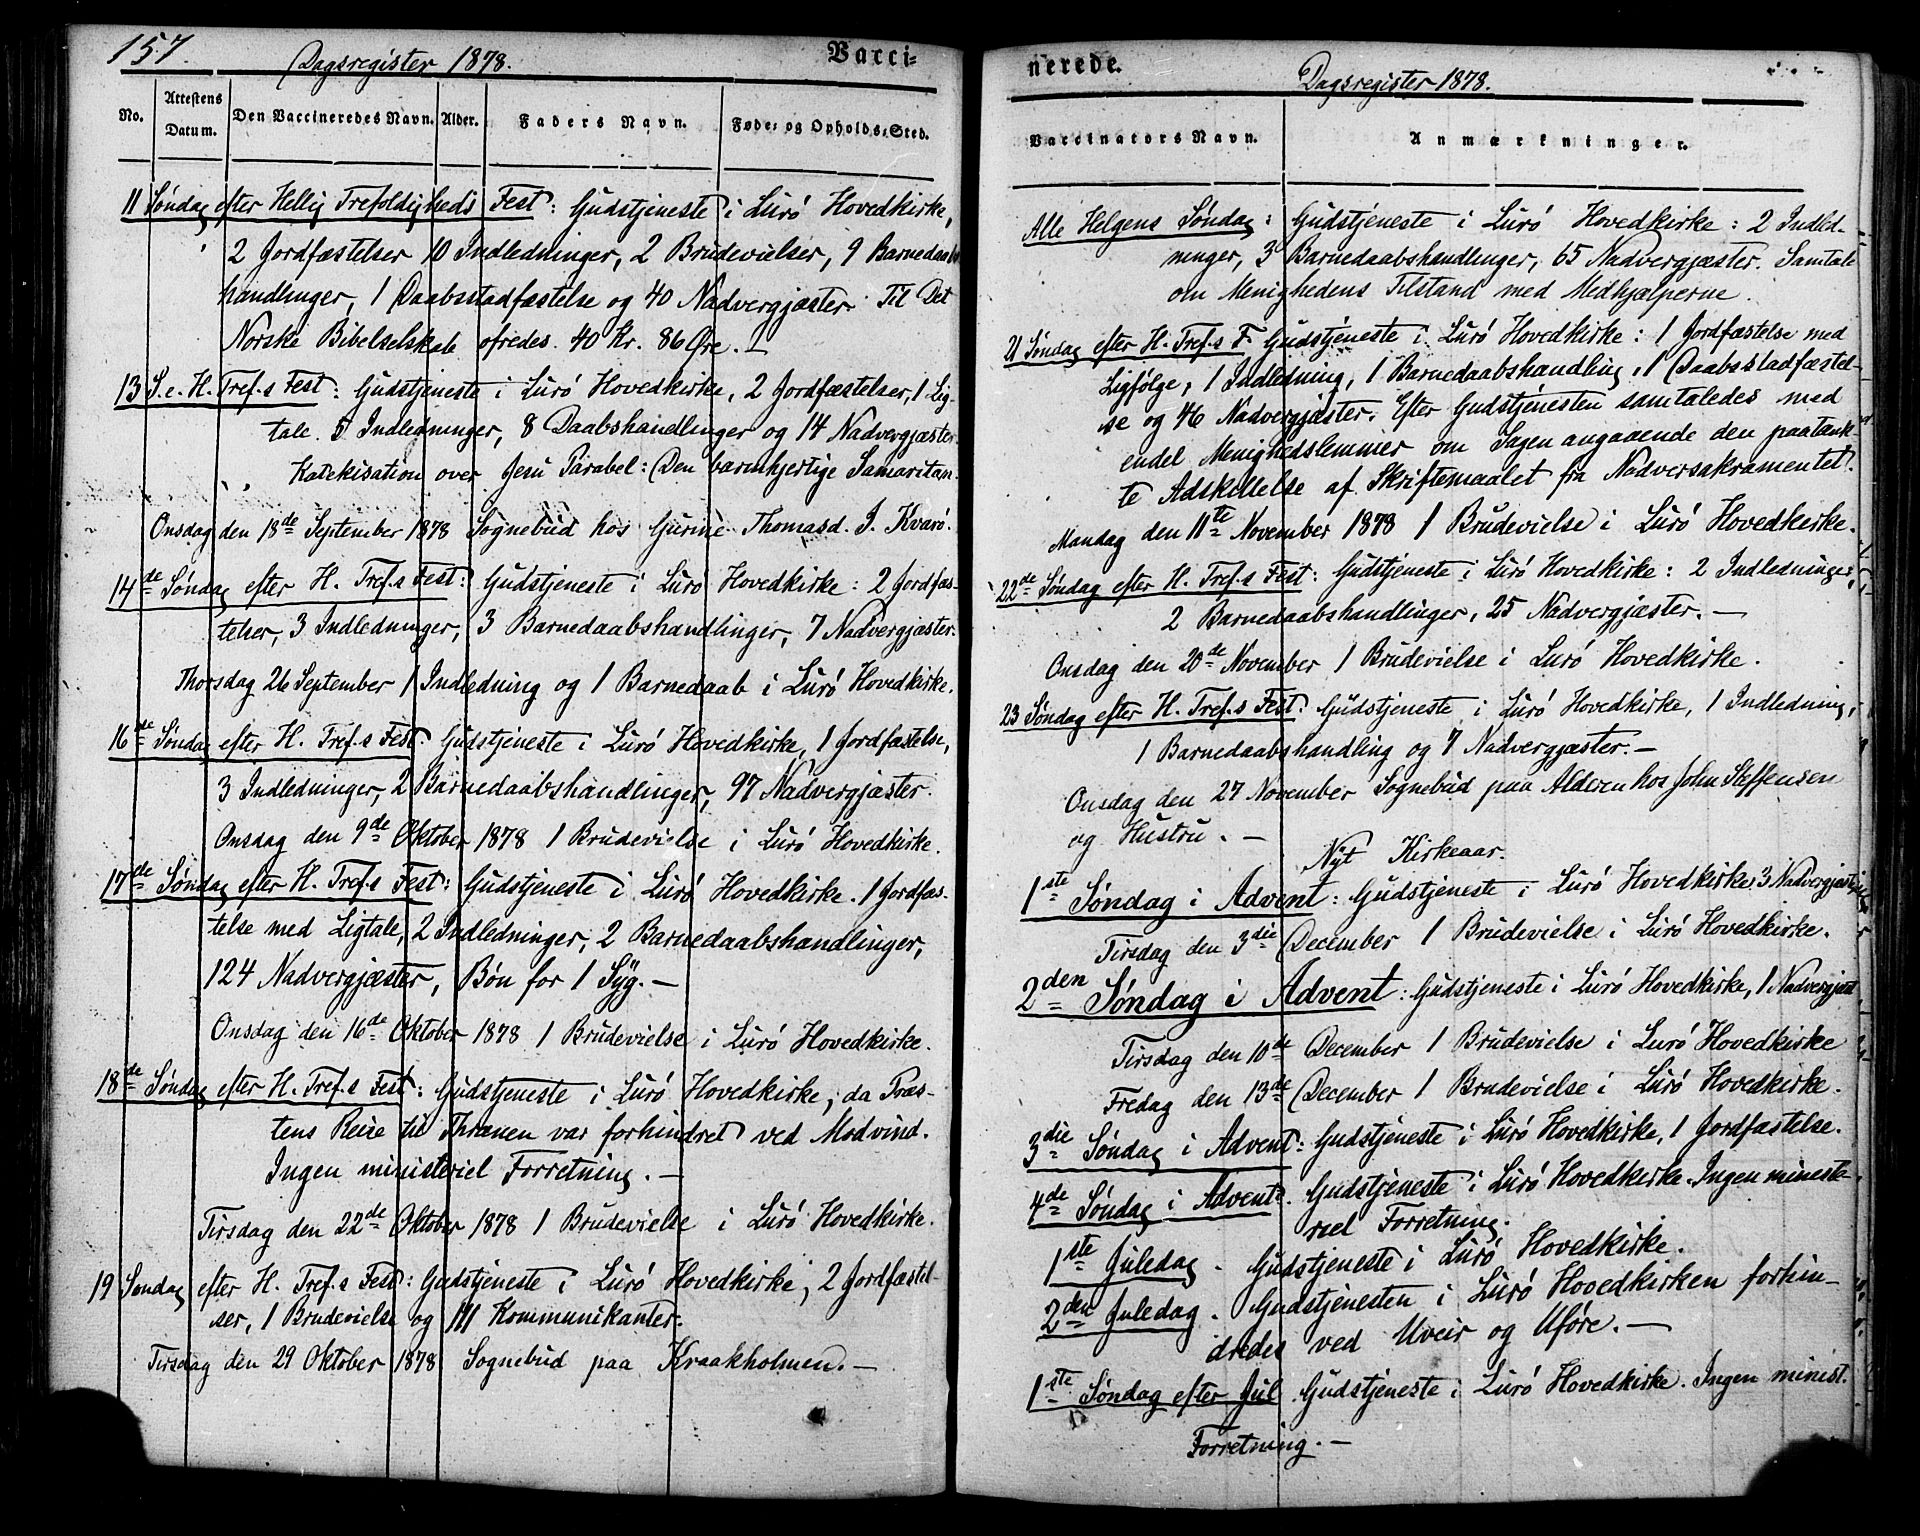 157.
Dagsregister 1878.
Vacci-
No.
Attestens Datum.
Den Vaccineredes Navn.
Alder.
Faders Navn.
Føde- og Opholds-Sted.
11 Søndag efter Hellig Trefoldigheds Fest: Gudstjeneste i Lurö Hovedkirke,
2 Jordfæstelser 10 Indledninger, 2 Brudevielser, 9 Barnedaabs
handlinger, 1 Daabsstadfæstelse og 40 Nadvergjæster. Til Det
Norske Bibelselskab ofredes 40 Kr. 86 Øre.
13 S. e. H. Tref.s Fest: Gudstjeneste i Lurö Hovedkirke, 2 Jordfæstelser, 1 Lig-
tale. 5 Indledninger, 8 Daabshandlinger og 14 Nadvergjæster.
Katekisation over Jesu Parabel: Den barmhjertige Samaritan.
Onsdag den 18de September 1878 Sognebud hos Gurine Thomasd. I. Kvarö.
14de Søndag efter H. Tref.s Fest: Gudstjeneste i Lurö Hovedkirke: 2 Jordfæs-
telser, 3 Indledninger, 3 Barnedaabshandlinger, 7 Nadvergjæster.
Thorsdag 26 September 1 Indledning og 1 Barnedaab i Lurö Hovedkirke.
16de Søndag efter H. Tref.s Fest. Gudstjeneste i Lurö Hovedkirke, 1 Jordfæstelse,
3 Indledninger, 2 Barnedaabshandlinger, 97 Nadvergjæster.
Onsdag den 9de Oktober 1878 1 Brudevielse i Lurö Hovedkirke.
17de Søndag efter H. Tref.s Fest: Gudstjeneste i Lurö Hovedkirke. 1 Jordfæs-
telse med Ligtale, 2 Indledninger, 2 Barnedaabshandlinger,
124 Nadvergjæster, Bön for 1 Syg. —
Onsdag den 16de Oktober 1878 1 Brudevielse i Lurö Hovedkirke.
18de Søndag efter H. Tref.s Fest: Gudstjeneste i Lurö Hovedkirke, da Præs-
tens Reise til Thrænen var forhindret ved Modvind.
Ingen ministeriel Forretning. —
Tirsdag den 22de Oktober 1878 1 Brudevielse i Lurö Hovedkirke.
19 Søndag efter H. Tref.s Fest: Gudstjeneste i Lurö Hovedkirke, 2 Jordfæstel-
ser, 1 Brudevielse og 111 Kommunikanter.
Tirsdag den 29 Oktober 1878 Sognebud paa Kraakholmen. —
nerede.
Dagsregister 1878.
Vaccinators Navn.
Anmærkninger.
Alle Helgens Søndag: Gudstjeneste i Lurö Hovedkirke: 2 Indled-
ninger, 3 Barnedaabshandlinger, 65 Nadvergjæster. Samtale
om Menighedens Tilstand med Medhjælperne.
21 Søndag efter H. Tref.s F. Gudstjeneste i Lurö Hovedkirke: 1 Jordfæstelse med
Ligfölge, 1 Indledning, 1 Barnedaabshandling, 1 Daabsstadfæstel-
se og 46 Nadvergjæster. Efter Gudstjenesten samtaledes med
endel Menighedslemmer om Sagen angaaende den paatænk-
te Adskillelse af Skriftemaalet fra Nadversakramentet.
Mandag den 11te November 1878 1 Brudevielse i Lurö Hovedkirke.
22de Søndag efter H. Tref.s Fest: Gudstjeneste i Lurö Hovedkirke: 2 Indledninger,
2 Barnedaabshandlinger, 25 Nadvergjæster. —
Onsdag den 20de November 1 Brudevielse i Lurö Hovedkirke.
23 Søndag efter H. Tref.s Fest: Gudstjeneste i Lurö Hovedkirke, 1 Indledning,
1 Barnedaabshandling og 7 Nadvergjæster. —
Onsdag den 27 November Sognebud paa Alderen hos John Steffensen
og Hustru. —
Nyt Kirkeaar.
1ste Søndag i Advent: Gudstjeneste i Lurö Hovedkirke 3 Nadvergjæster
Tirsdag den 3die December 1 Brudevielse i Lurö Hovedkirke.
2den Søndag i Advent: Gudstjeneste i Lurö Hovedkirke, 1 Nadvergjæst
Tirsdag den 10de December 1 Brudevielse i Lurö Hovedkirke
Fredag den 13de December 1 Brudevielse i Lurö Hovedkirke.
3die Søndag i Advent: Gudstjeneste i Lurö Hovedkirke, 1 Jordfæstelse.
4de Søndag i Advent. Gudstjeneste i Lurö Hovedkirke. Ingen ministe-
riel Forretning.
1ste Juledag. Gudstjeneste i Lurö Hovedkirke.
2den Juledag. Gudstjenesten i Lurö Hovedkirken forhin-
dredes ved Uveir og Uföre. —
1ste Søndag efter Jul. Gudstjeneste i Lurö Hovedkirke. Ingen minist.
Forretning. —